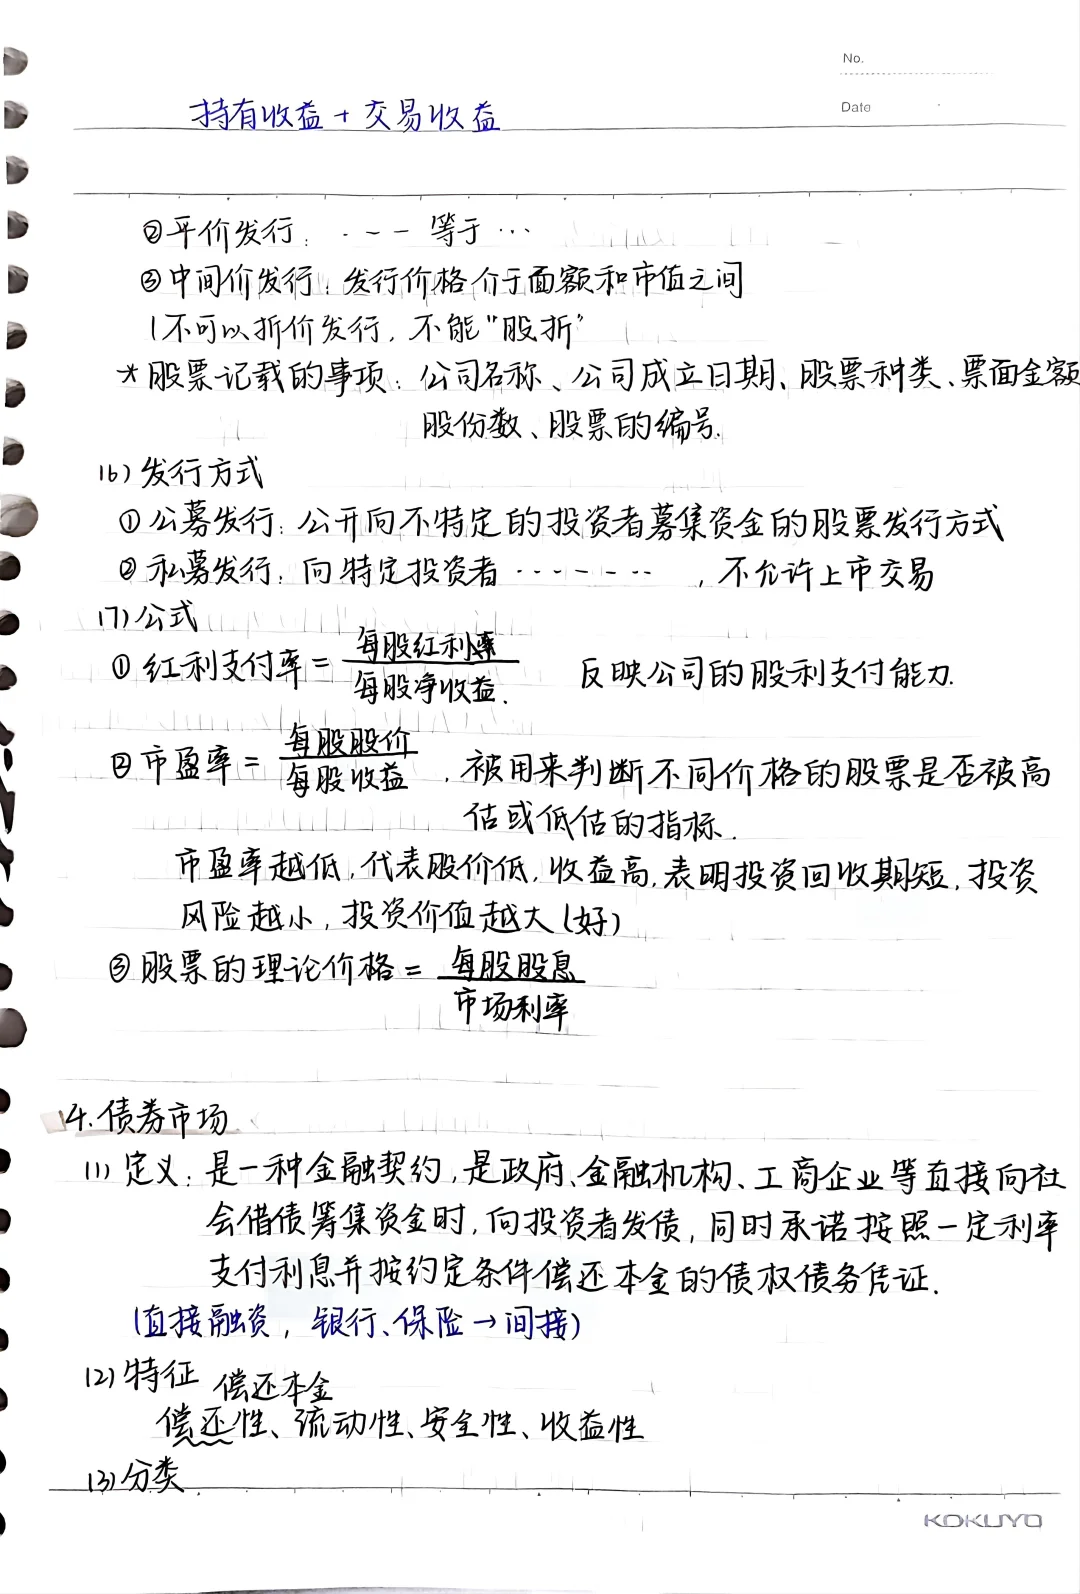 No.
Date
持有收益+交易收益
②平价发行：·--- 等于···
③中间价发行：发行价格介于面额和市值之间
(不可以折价发行，不能"股折"
*股票记载的事项：公司名称、公司成立日期、股票种类、票面金额
股份数、股票的编号.
16)发行方式
①公募发行：公开向不特定的投资者募集资金的股票发行方式
②私募发行：向特定投资者------，不允许上市交易
17)公式
①红利支付率=每股红利率/每股净收益. 反映公司的股利支付能力.
②市盈率=每股股价/每股收益，被用来判断不同价格的股票是否被高
估或低估的指标.
市盈率越低，代表股价低，收益高，表明投资回收期短，投资
风险越小，投资价值越大(好)
③股票的理论价格=每股股息/市场利率
4.债券市场
(1)定义：是一种金融契约，是政府、金融机构、工商企业等直接向社
会借债筹集资金时，向投资者发债，同时承诺按照一定利率
支付利息并按约定条件偿还本金的债权债务凭证.
(直接融资，银行、保险→间接)
(2)特征 偿还本金
偿还性、流动性、安全性、收益性
(3)分类
KOKUYO